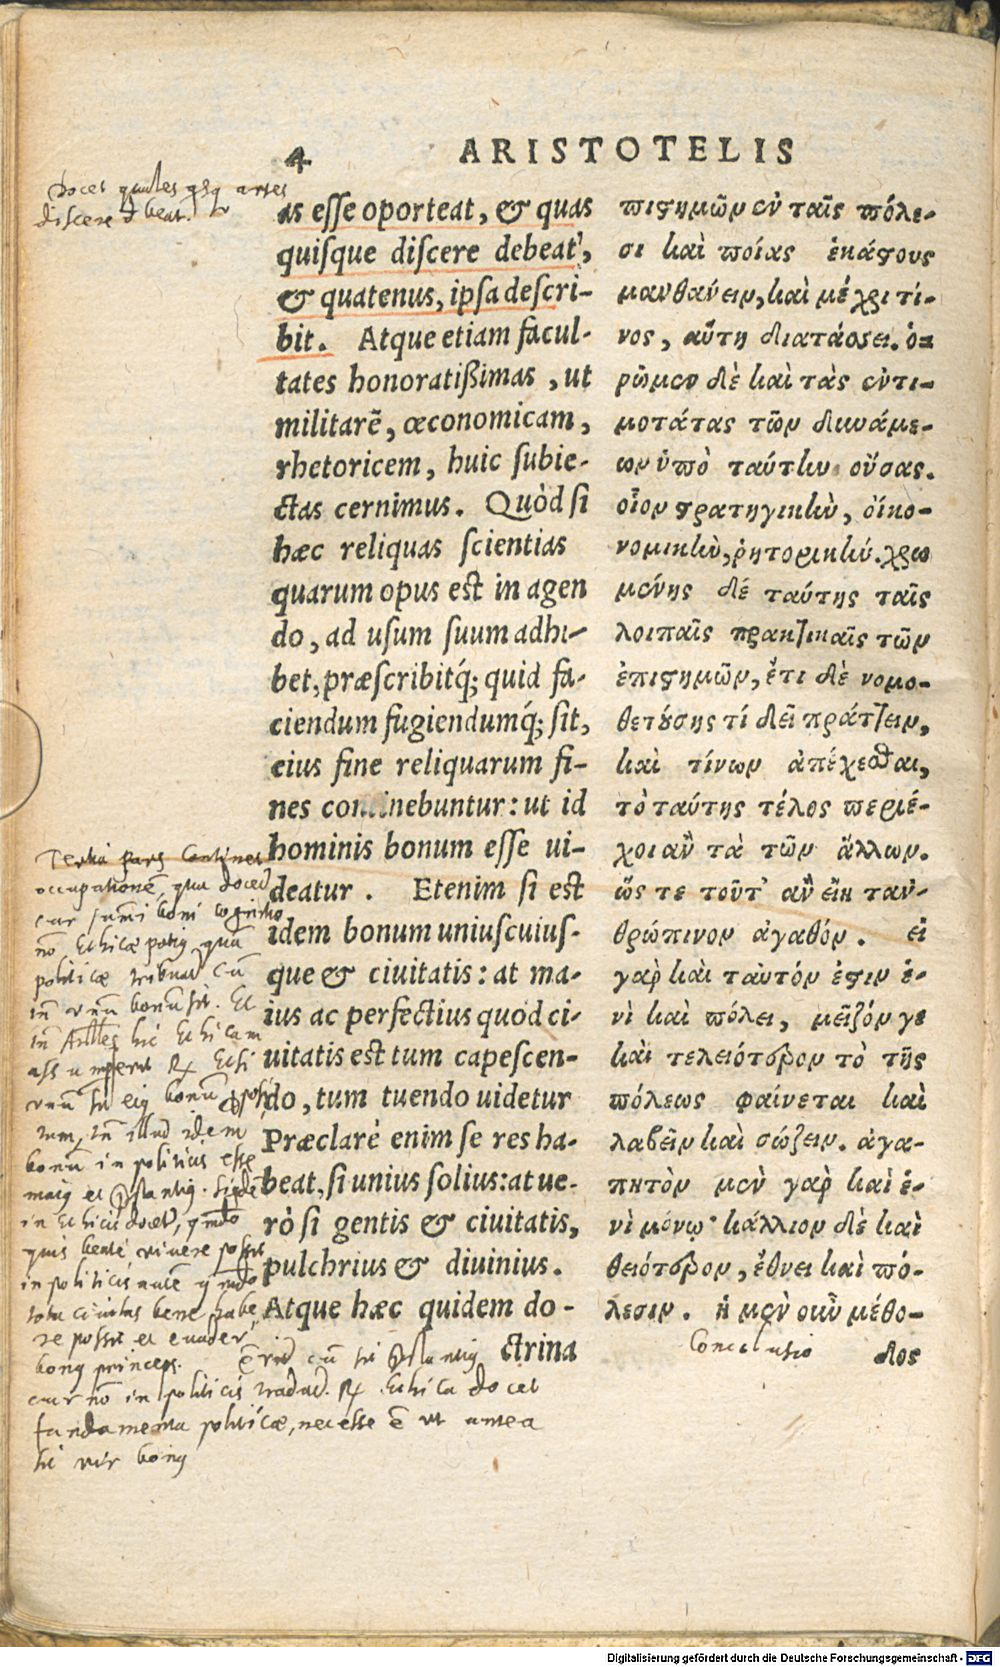 4 ARISTOTELIS
Docet quales quisque artes
discere debeat.
as esse oporteat, & quas
quisque discere debeat,
& quatenus, ipsa descri-
bit. Atque etiam facul-
tates honoratißimas, ut
militarē, œconomicam,
rhetoricem, huic subie-
ctas cernimus. Quòd si
hæc reliquas scientias
quarum opus est in agen
do, ad usum suum adhi-
bet, præscribitq́; quid fa-
ciendum fugiendumq́; sit,
eius fine reliquarum fi-
nes continebuntur: ut id
hominis bonum esse ui-
deatur. Etenim si est
idem bonum uniuscuius-
que & ciuitatis: at ma-
ius ac perfectius quod ci-
uitatis est tum capescen-
do, tum tuendo uidetur
Præclarè enim se res ha-
beat, si unius solius: at ue-
rò si gentis & ciuitatis,
pulchrius & diuinius.
Atque hæc quidem do-
ctrina
πιστημῶν ἐν ταῖς πόλε-
σι καὶ ποίας ἑκάστους
μανθάνειν, καὶ μέχρι τί-
νος, αὕτη διατάσσει. ὁ-
ρῶμεν δὲ καὶ τὰς ἐντι-
μοτάτας τῶν δυνάμε-
ων ὑπὸ ταύτην οὔσας.
οἷον στρατηγικὴν, οἰκο-
νομικὴν, ῥητορικήν. χρω
μένης δέ ταύτης ταῖς
λοιπαῖς πρακτικαῖς τῶν
ἐπιστημῶν, ἔτι δὲ νομο-
θετούσης τί δεῖ πράττειν,
καὶ τίνων ἀπέχεσθαι,
τὸ ταύτης τέλος περιέ-
χοι ἂν τὰ τῶν ἄλλων.
ὥς τε τοῦτ' ἂν εἴη τἀν-
θρώπινον ἀγαθόν. εἰ
γὰρ καὶ ταὐτόν ἐστιν ἑ-
νὶ καὶ πόλει, μεῖζόν γε
καὶ τελειότερον τὸ τῆς
πόλεως φαίνεται καὶ
λαβεῖν καὶ σώζειν. ἀγα-
πητὸν μὲν γὰρ καὶ ἑ-
νὶ μόνῳ· κάλλιον δὲ καὶ
θειότερον, ἔθνει καὶ πό-
λεσιν. ἡ μὲν οὖν μέθο-
δος
Conclusio
Tertia pars Continet
occupationē, qua docet
cur sumi boni cognitio
nō Ethicæ potius quā
politicæ tribuat cū
bonū sit. Et
hic Ethicam
bonū
illud idem
bonū in politicis esse
in Ethicis docet, quōdo
quis beate vivere possit
in politicis autē quōdo
tota civitas bene habe
re possit et
bonus princeps.
cur nō in politicis tradat. Ethica docet
fundamenta politicæ, necesse ē ut antea
sit vir bonus
Digitalisierung gefördert durch die Deutsche Forschungsgemeinschaft - DFG